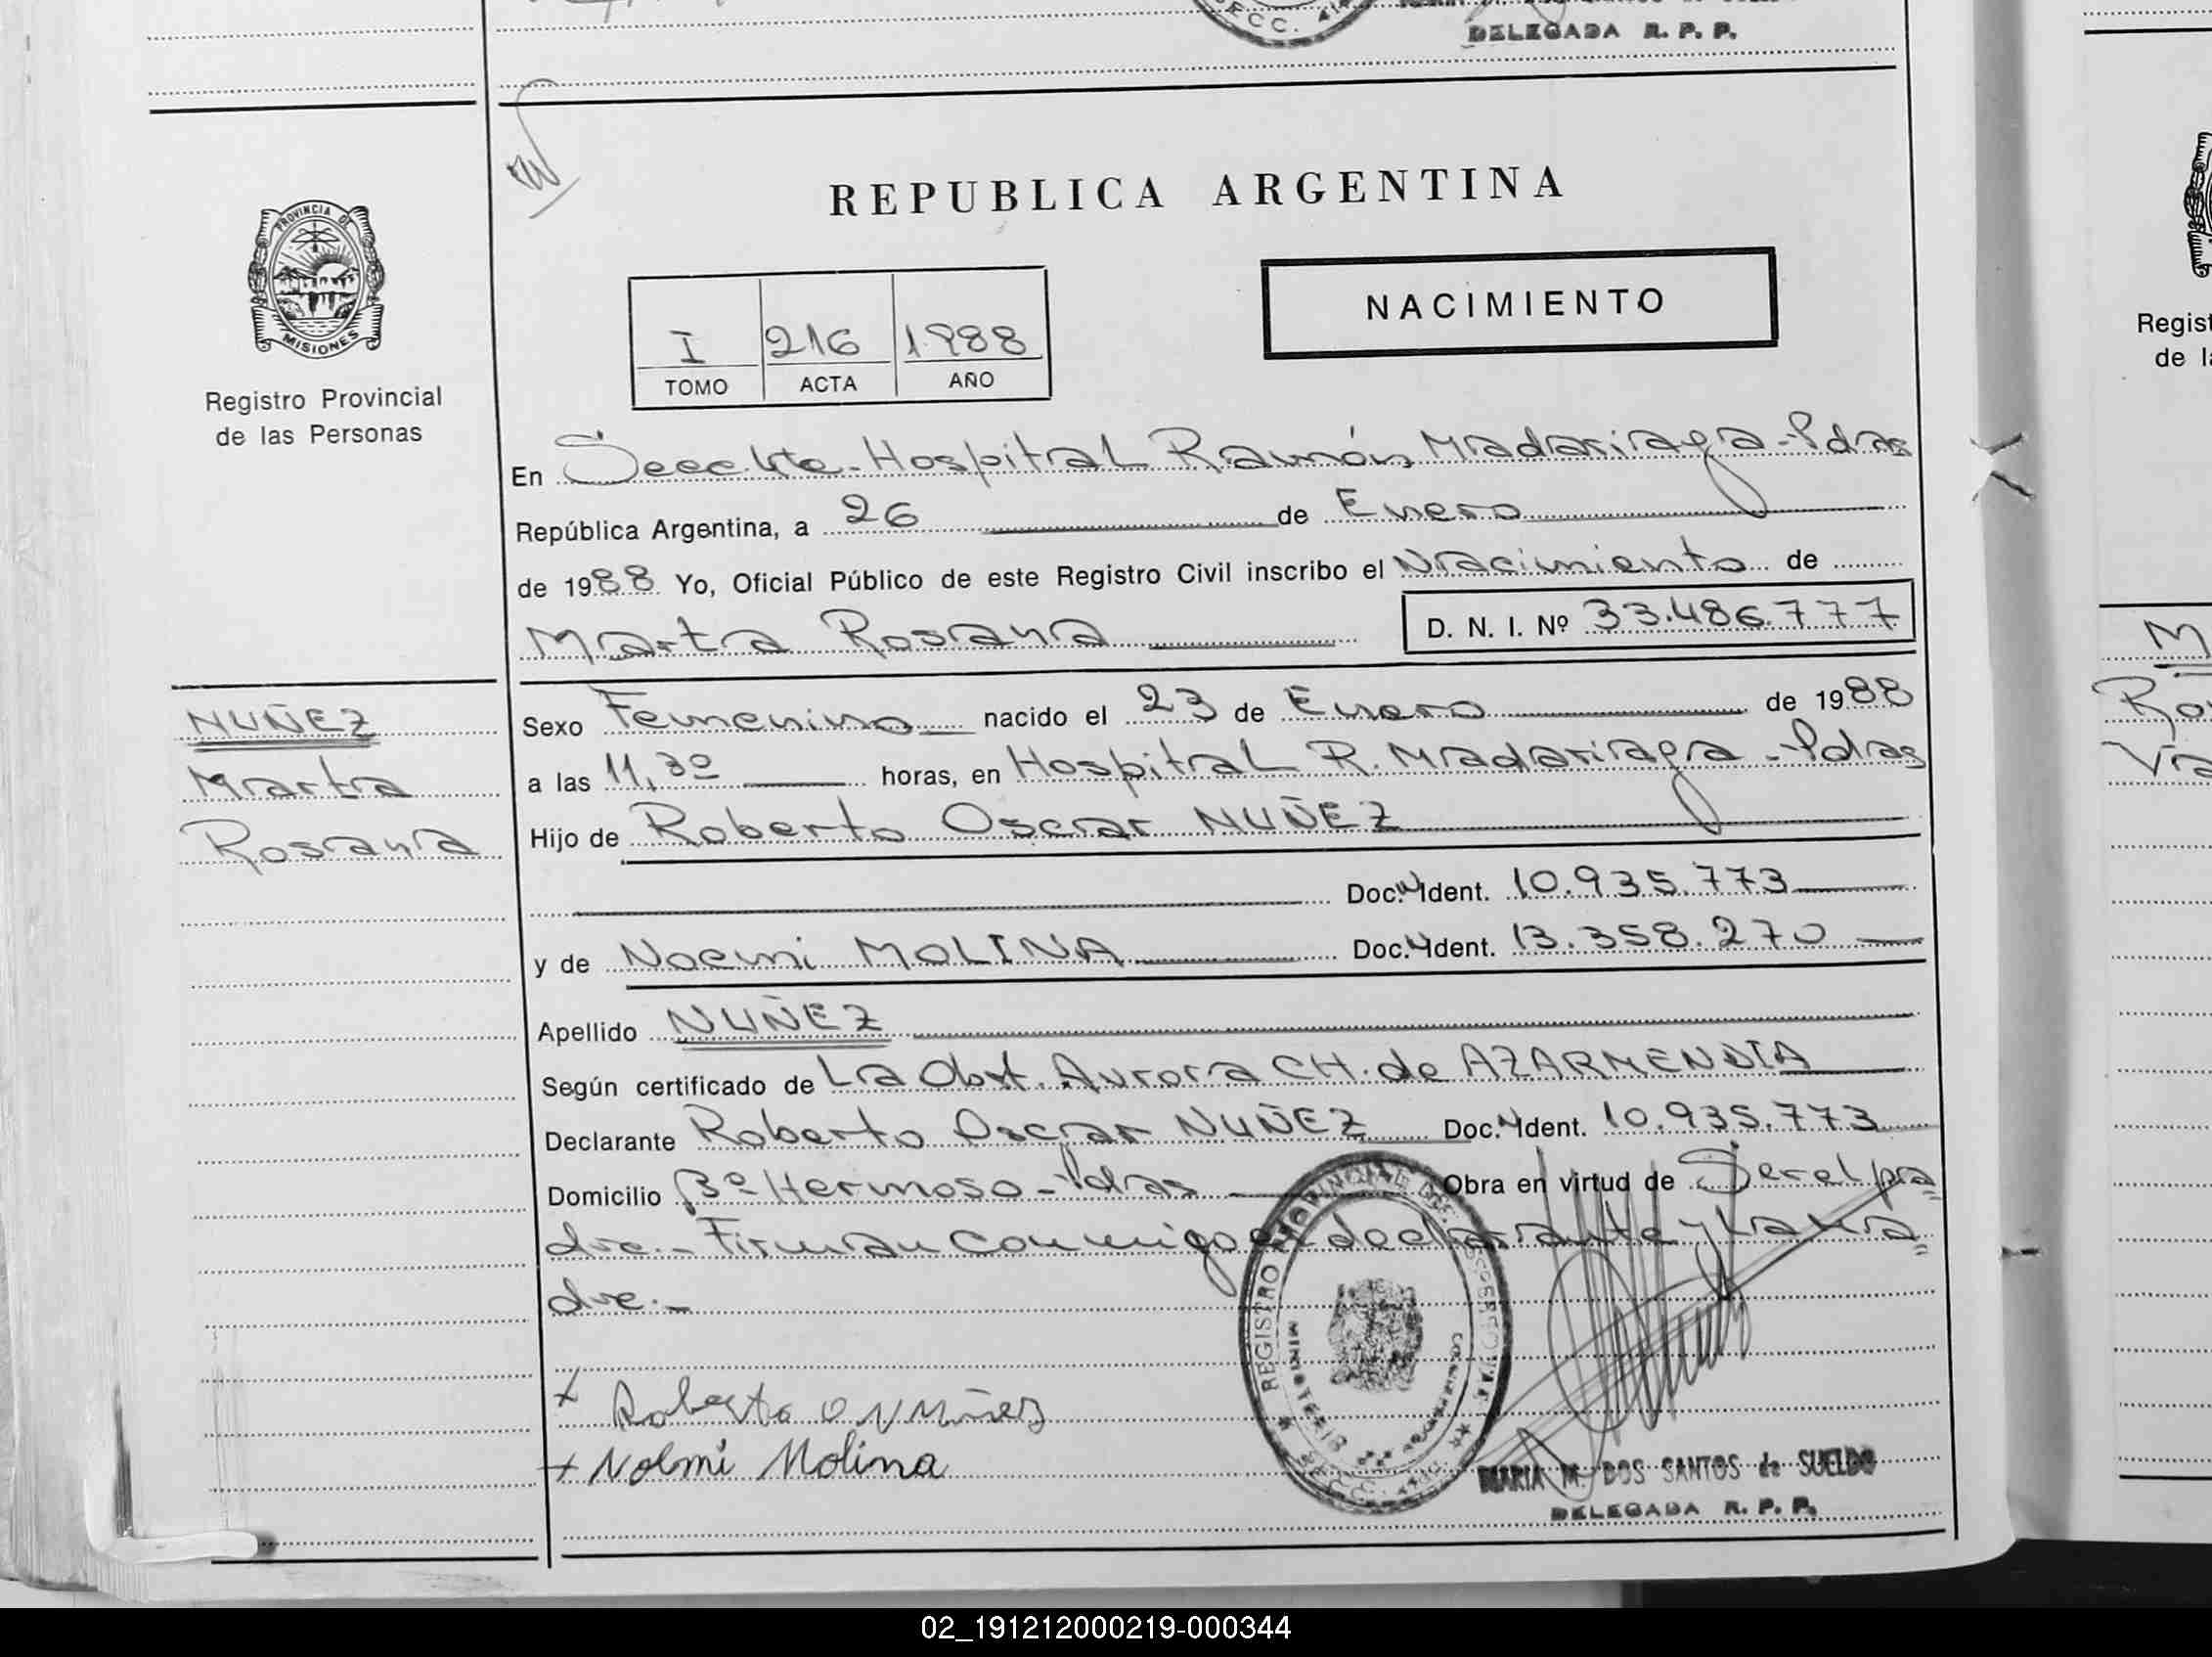 SECC.
DELEGADA R. P. P.
REPUBLICA ARGENTINA
PROVINCIA DE
MISIONES
Registro Provincial
de las Personas
NACIMIENTO
I 216 1988
TOMO ACTA AÑO
En Secc. 4ta. Hospital Ramón Madariaga - Pdas
República Argentina, a 26 de Enero
de 1988 Yo, Oficial Público de este Registro Civil inscribo el Nacimiento de
Marta Rosana D. N. I. Nº 33.486.777
NUÑEZ
Marta
Rosana
Sexo Femenino nacido el 23 de Enero de 1988
a las 11,30 horas, en Hospital R. Madariaga - Pdas
Hijo de Roberto Oscar NUÑEZ
Doc. Ident. 10.935.773
y de Noemi MOLINA Doc. Ident. 13.358.270
Apellido NUÑEZ
Según certificado de La Obst. Aurora CH. de AZARMENDIA
Declarante Roberto Oscar NUÑEZ Doc. Ident. 10.935.773
Domicilio Bº Hermoso - Pdas Obra en virtud de Ser el pa=
dre.- Firman conmigo el declarante y la ma=
dre.-
x Roberto O Nuñez
x Noemi Molina
REGISTRO PROVINCIAL DE
MINISTERIO
SECC.
MARIA M. DOS SANTOS de SUELDO
DELEGADA R. P. P.
Regist
de la
M
Ro
Va
02_191212000219-000344